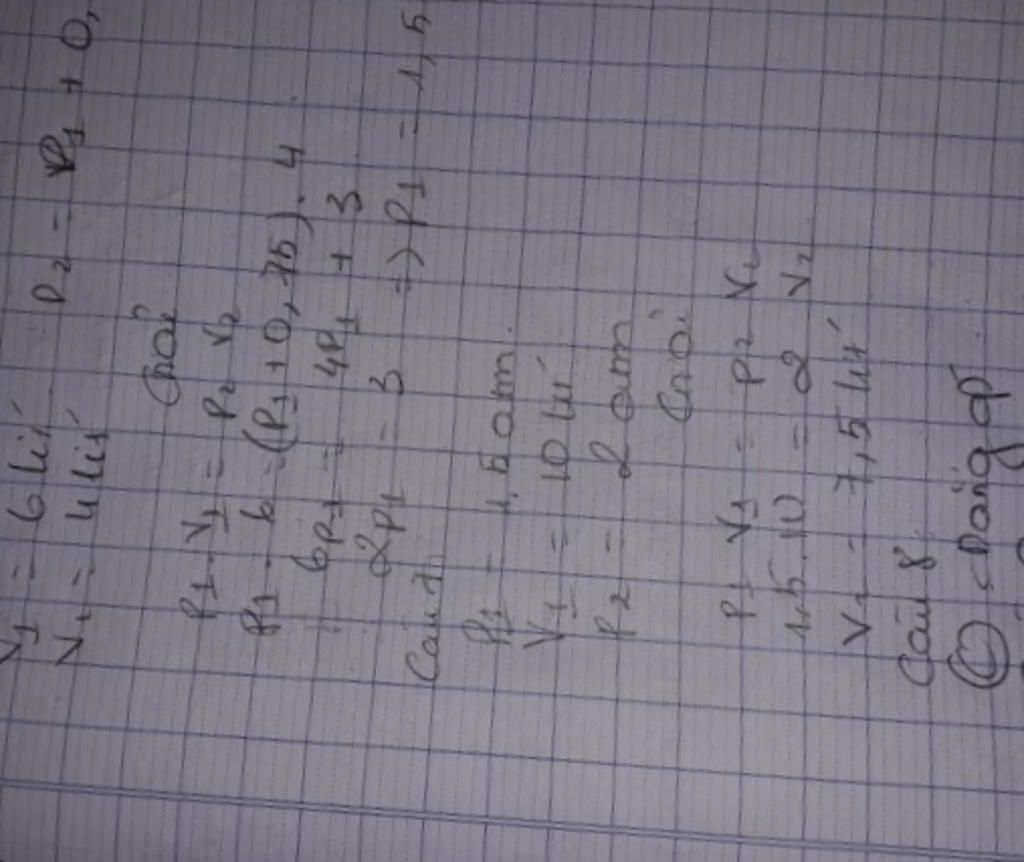 V1 = 6 lít P2 = P1 + 0,
V2 = 4 lít
Giải
P1 . V1 = P2 V2
P1 . 6 = (P1 + 0,75) . 4
6P1 = 4P1 + 3
2P1 = 3 => P1 = 1,5
Câu 7
P1 = 1,5 atm
V1 = 10 lít
P2 = 2 atm
Giải
P1 V1 = P2 V2
1,5 . 10 = 2 V2
= 7,5 lít
Câu 8
C đẳng áp